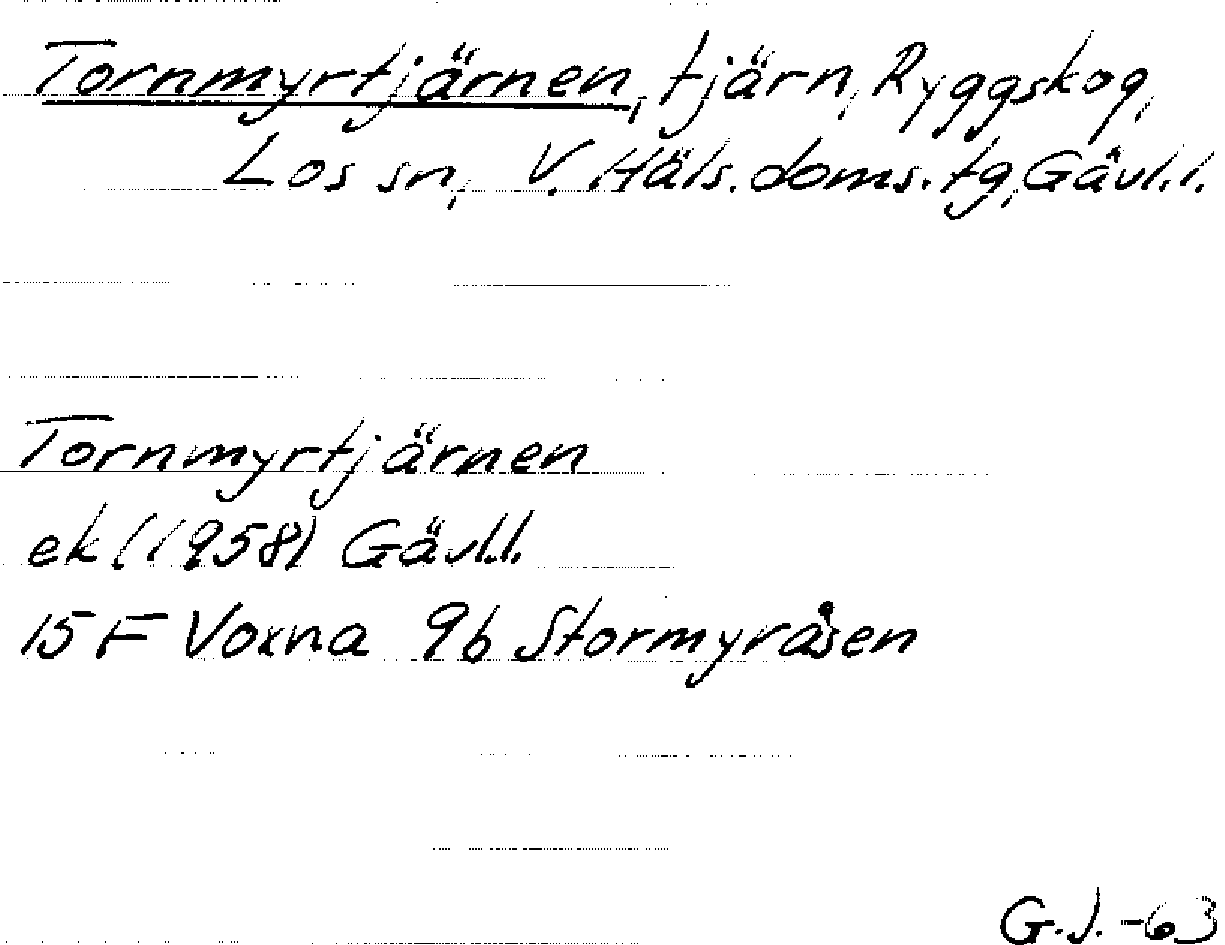 Tornmyrtjärnen, tjärn, Ryggskog,
Los sn, V. Häls. doms. tg, Gävl.l.
Tornmyrtjärnen
ek (1958) Gävl.l.
15 F Voxna 9b Stormyråsen
G.J. -63